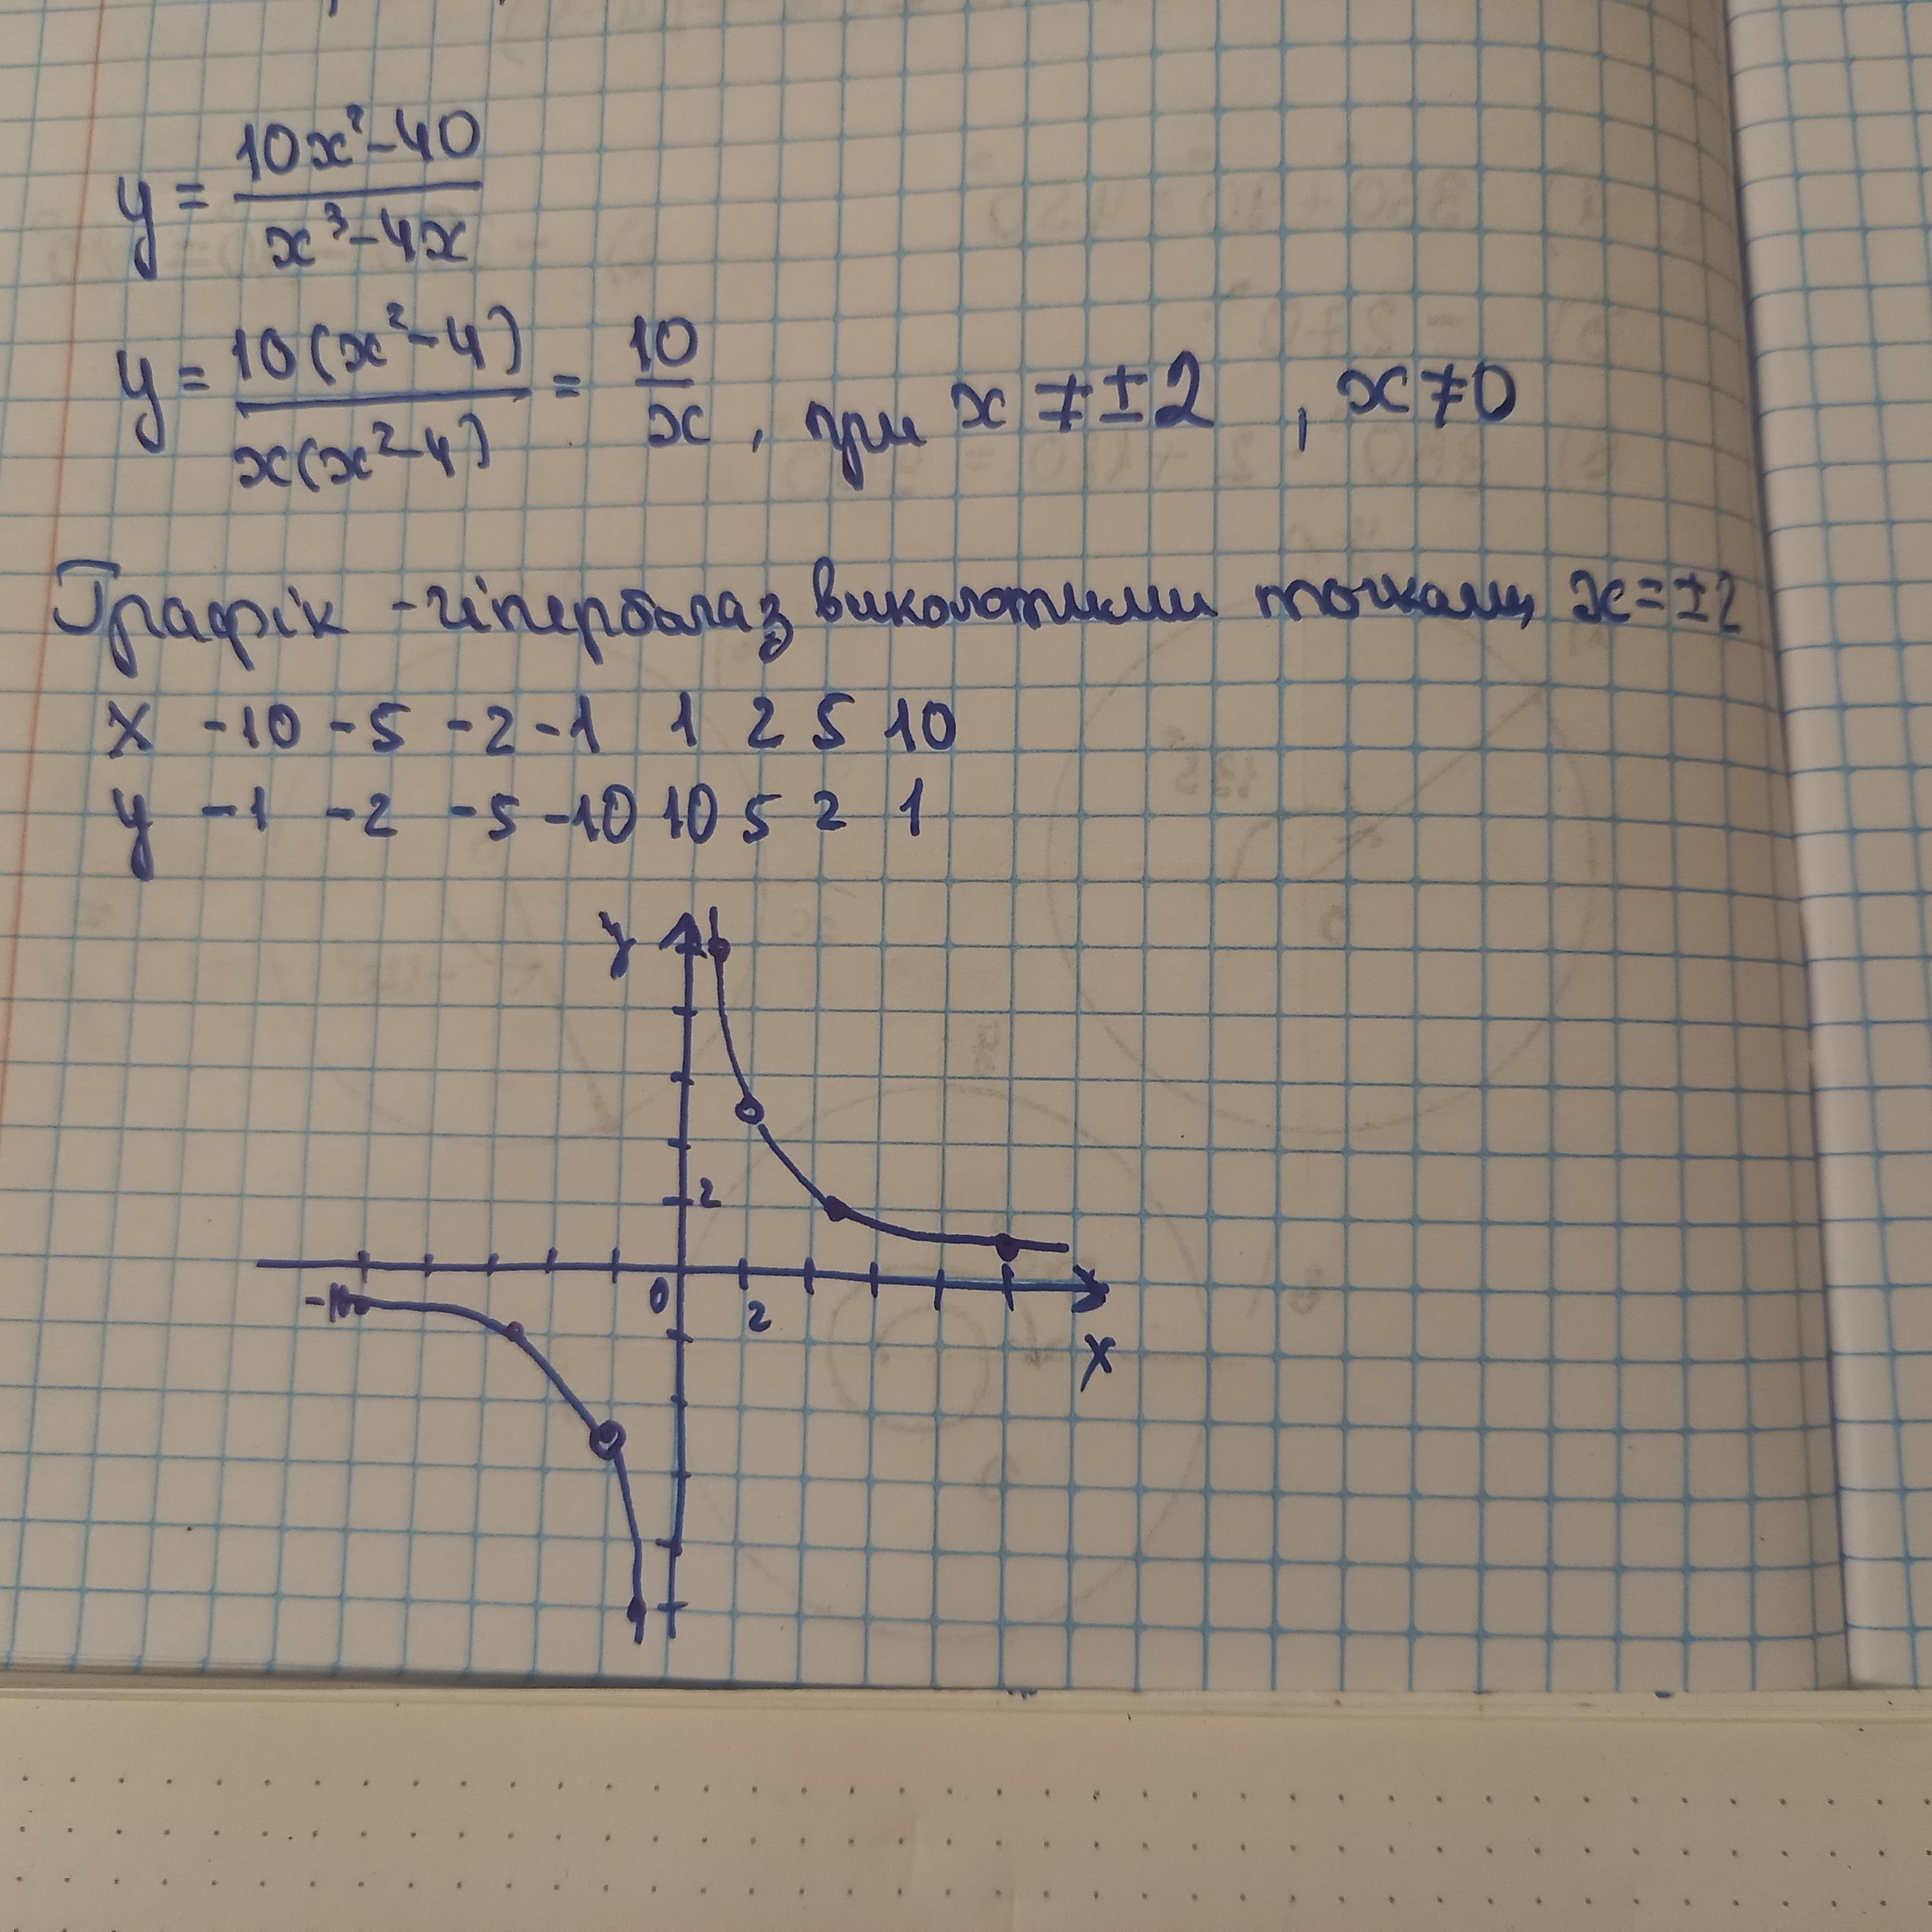 y = (10x² - 40) / (x³ - 4x)
y = 10(x² - 4) / x(x² - 4) = 10 / x , при x ≠ ±2 , x ≠ 0
Графік - гіпербола з виколотими точками x = ±2
x -10 -5 -2 -1 1 2 5 10
y -1 -2 -5 -10 10 5 2 1
y
2
-10 0 2
x